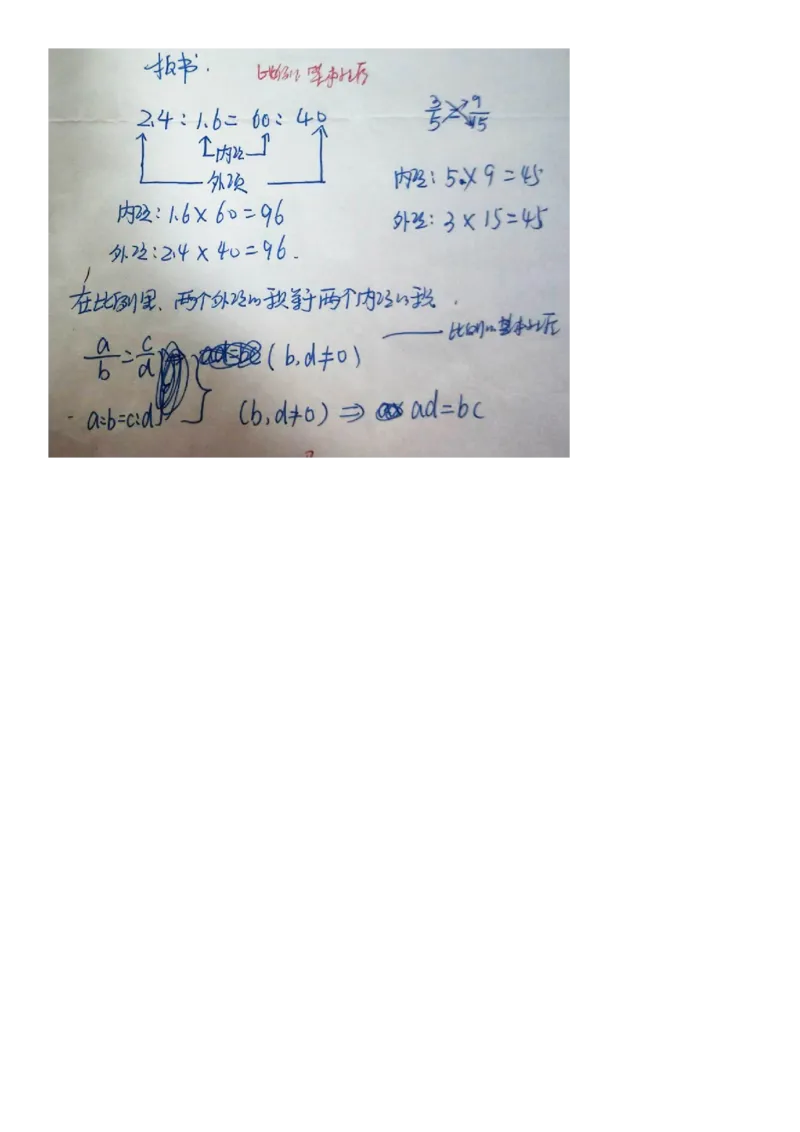 板书.
比例的基本性质
2.4 : 1.6 = 60 : 40
内项
外项
内项: 1.6 × 60 = 96
外项: 2.4 × 40 = 96.
3/5 = 9/15
内项: 5 × 9 = 45
外项: 3 × 15 = 45
在比例里、两个外项的积等于两个内项的积.
—— 比例的基本性质
a/b = c/d (b, d ≠ 0)
a:b=c:d (b, d ≠ 0) ⇒ ad = bc